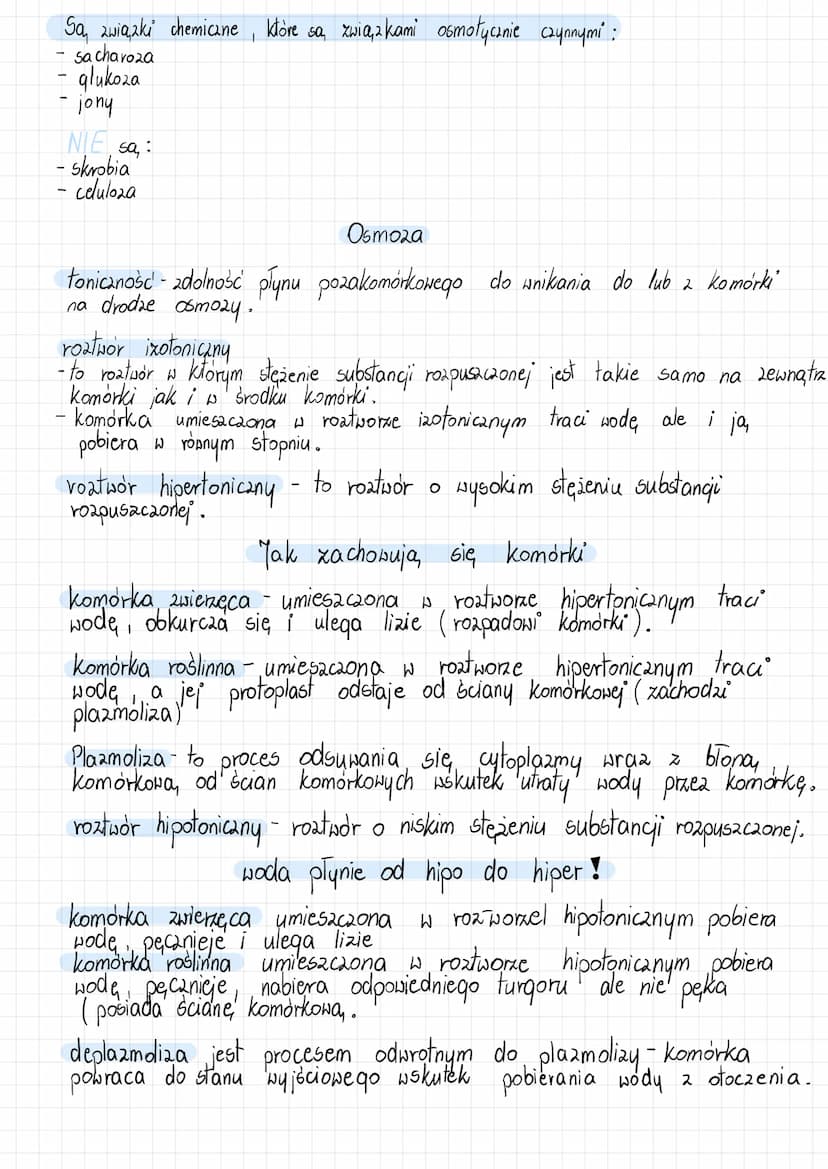 Są związki chemiczne, które są związkami osmotycznie czynnymi:
- sacharoza
- glukoza
- jony
NIE są:
- skrobia
- celuloza
Osmoza
toniczność - zdolność płynu pozakomórkowego do wnikania do lub z komórki
na drodze osmozy.
roztwór izotoniczny
- to roztwór w którym stężenie substancji rozpuszczonej jest takie samo na zewnątrz
komórki jak i w środku komórki.
- komórka umieszczona w roztworze izotonicznym traci wodę ale i ją
pobiera w równym stopniu.
roztwór hipertoniczny - to roztwór o wysokim stężeniu substancji
rozpuszczonej.
Jak zachowują się komórki
komórka zwierzęca - umieszczona w roztworze hipertonicznym traci
wodę, obkurcza się i ulega lizie (rozpadowi komórki).
komórka roślinna - umieszczona w roztworze hipertonicznym traci
wodę, a jej protoplast odstaje od ściany komórkowej (zachodzi
plazmoliza)
Plazmoliza - to proces odsuwania się cytoplazmy wraz z błoną
komórkową od ścian komórkowych wskutek utraty wody przez komórkę.
roztwór hipotoniczny - roztwór o niskim stężeniu substancji rozpuszczonej.
woda płynie od hipo do hiper!
komórka zwierzęca umieszczona w roztworzel hipotonicznym pobiera
wodę, pęcznieje i ulega lizie
komórka roślinna umieszczona w roztworze hipotonicznym pobiera
wodę, pęcznieje, nabiera odpowiedniego turgoru ale nie pęka
(posiada ścianę komórkową.
deplazmoliza jest procesem odwrotnym do plazmolizy - komórka
powraca do stanu wyjściowego wskutek pobierania wody z otoczenia.